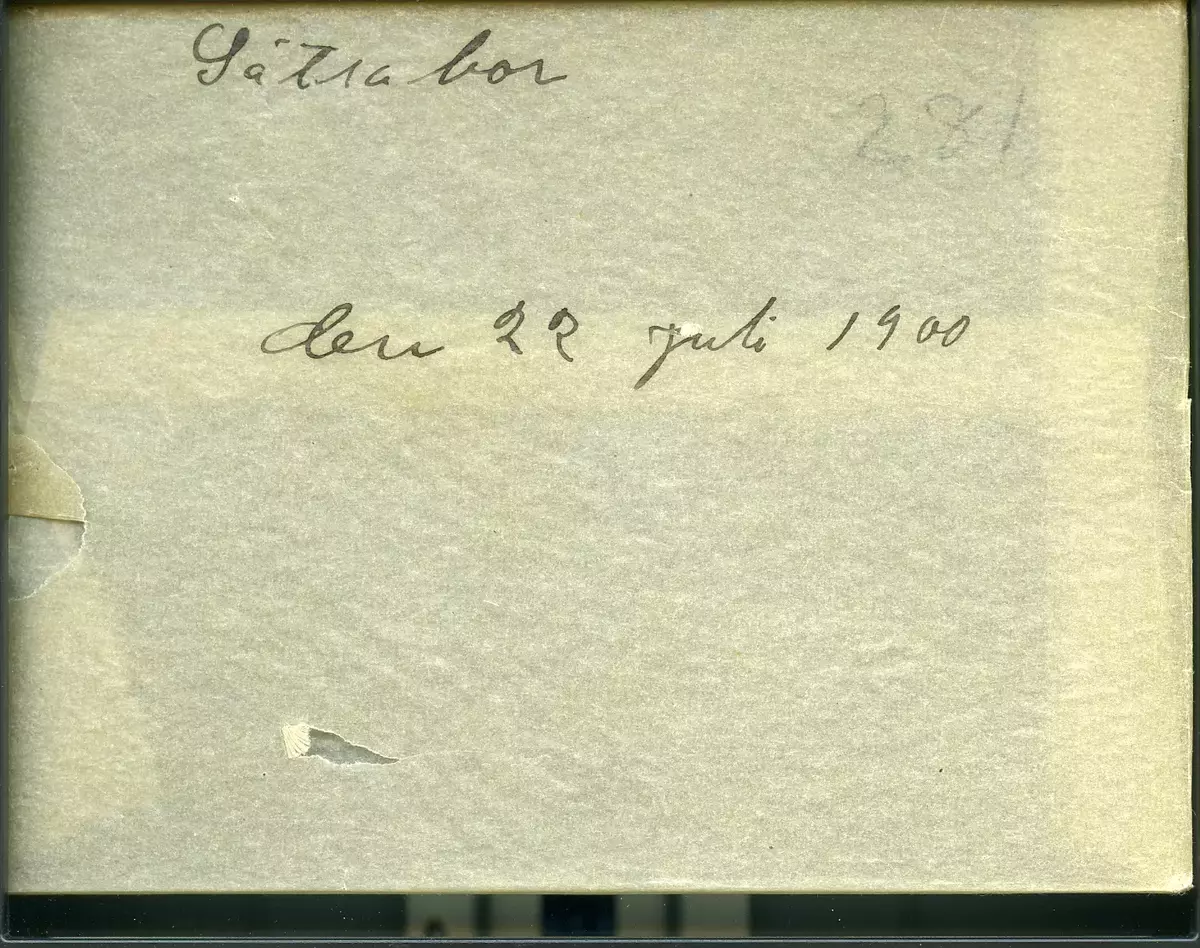 Sätra bor
281
den 22 juli 1900